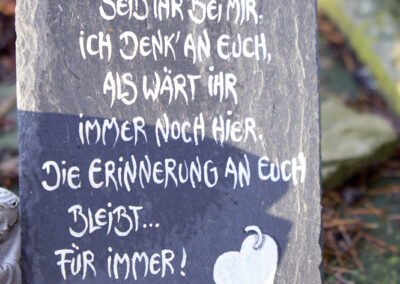 SEID IHR BEI MIR.
ICH DENK' AN EUCH,
ALS WÄRT IHR
IMMER NOCH HIER.
DIE ERINNERUNG AN EUCH
BLEIBT...
FÜR IMMER!